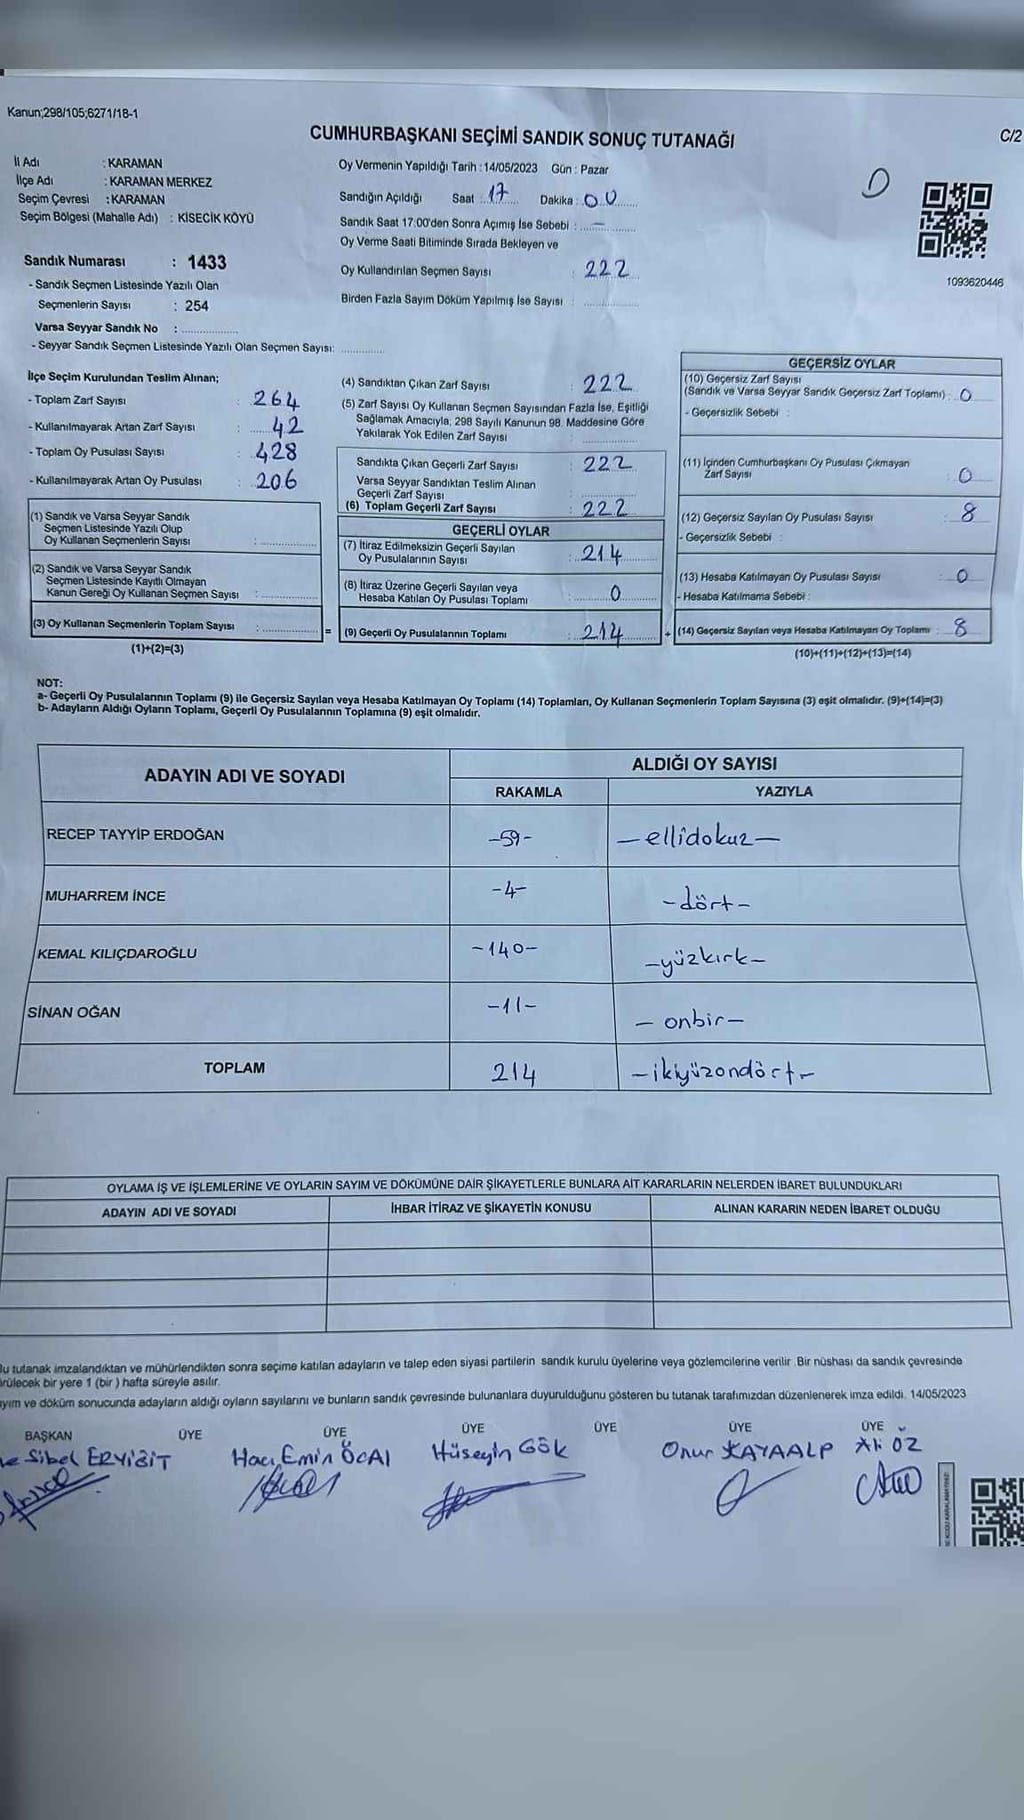 Kanun;298/105;6271/18-1
CUMHURBAŞKANI SEÇİMİ SANDIK SONUÇ TUTANAĞI
C/2
İl Adı : KARAMAN
İlçe Adı : KARAMAN MERKEZ
Seçim Çevresi : KARAMAN
Seçim Bölgesi (Mahalle Adı) : KISECİK KÖYÜ
Oy Vermenin Yapıldığı Tarih : 14/05/2023 Gün : Pazar
Sandığın Açıldığı Saat : 17 Dakika : 00
Sandık Saat 17:00'den Sonra Açımış İse Sebebi :
Oy Verme Saati Bitiminde Sırada Bekleyen ve
Oy Kullandırılan Seçmen Sayısı : 222
Birden Fazla Sayım Döküm Yapılmış İse Sayısı :
1093620446
Sandık Numarası : 1433
- Sandık Seçmen Listesinde Yazılı Olan
Seçmenlerin Sayısı : 254
Varsa Seyyar Sandık No :
- Seyyar Sandık Seçmen Listesinde Yazılı Olan Seçmen Sayısı:
İlçe Seçim Kurulundan Teslim Alınan;
- Toplam Zarf Sayısı : 264
- Kullanılmayarak Artan Zarf Sayısı : 42
- Toplam Oy Pusulası Sayısı : 428
- Kullanılmayarak Artan Oy Pusulası : 206
(1) Sandık ve Varsa Seyyar Sandık
Seçmen Listesinde Yazılı Olup
Oy Kullanan Seçmenlerin Sayısı :
(2) Sandık ve Varsa Seyyar Sandık
Seçmen Listesinde Kayıtlı Olmayan
Kanun Gereği Oy Kullanan Seçmen Sayısı :
(3) Oy Kullanan Seçmenlerin Toplam Sayısı :
(1)+(2)=(3)
(4) Sandıktan Çıkan Zarf Sayısı : 222
(5) Zarf Sayısı Oy Kullanan Seçmen Sayısından Fazla İse, Eşitliği
Sağlamak Amacıyla; 298 Sayılı Kanunun 98. Maddesine Göre
Yakılarak Yok Edilen Zarf Sayısı :
Sandıkta Çıkan Geçerli Zarf Sayısı : 222
Varsa Seyyar Sandıktan Teslim Alınan
Geçerli Zarf Sayısı :
(6) Toplam Geçerli Zarf Sayısı : 222
GEÇERLİ OYLAR
(7) İtiraz Edilmeksizin Geçerli Sayılan
Oy Pusulalarının Sayısı : 214
(8) İtiraz Üzerine Geçerli Sayılan veya
Hesaba Katılan Oy Pusulası Toplamı : 0
= (9) Geçerli Oy Pusulalarının Toplamı : 214
GEÇERSİZ OYLAR
(10) Geçersiz Zarf Sayısı
(Sandık ve Varsa Seyyar Sandık Geçersiz Zarf Toplamı) : 0
- Geçersizlik Sebebi :
(11) İçinden Cumhurbaşkanı Oy Pusulası Çıkmayan
Zarf Sayısı : 0
(12) Geçersiz Sayılan Oy Pusulası Sayısı : 8
- Geçersizlik Sebebi :
(13) Hesaba Katılmayan Oy Pusulası Sayısı : 0
- Hesaba Katılmama Sebebi :
+ (14) Geçersiz Sayılan veya Hesaba Katılmayan Oy Toplamı : 8
(10)+(11)+(12)+(13)=(14)
NOT:
a- Geçerli Oy Pusulalarının Toplamı (9) ile Geçersiz Sayılan veya Hesaba Katılmayan Oy Toplamı (14) Toplamları, Oy Kullanan Seçmenlerin Toplam Sayısına (3) eşit olmalıdır. (9)+(14)=(3)
b- Adayların Aldığı Oyların Toplamı, Geçerli Oy Pusulalarının Toplamına (9) eşit olmalıdır.
ADAYIN ADI VE SOYADI
ALDIĞI OY SAYISI
RAKAMLA YAZIYLA
RECEP TAYYİP ERDOĞAN -59- -ellidokuz-
MUHARREM İNCE -4- -dört-
KEMAL KILIÇDAROĞLU -140- -yüzkırk-
SİNAN OĞAN -11- -onbir-
TOPLAM 214 -ikiyüzondört-
OYLAMA İŞ VE İŞLEMLERİNE VE OYLARIN SAYIM VE DÖKÜMÜNE DAİR ŞİKAYETLERLE BUNLARA AİT KARARLARIN NELERDEN İBARET BULUNDUKLARI
ADAYIN ADI VE SOYADI İHBAR İTİRAZ VE ŞİKAYETİN KONUSU ALINAN KARARIN NEDEN İBARET OLDUĞU
Bu tutanak imzalandıktan ve mühürlendikten sonra seçime katılan adayların ve talep eden siyasi partilerin sandık kurulu üyelerine veya gözlemcilerine verilir. Bir nüshası da sandık çevresinde
rülecek bir yere 1 (bir ) hafta süreyle asılır.
yım ve döküm sonucunda adayların aldığı oyların sayılarını ve bunların sandık çevresinde bulunanlara duyurulduğunu gösteren bu tutanak tarafımızdan düzenlenerek imza edildi. 14/05/2023
BAŞKAN ÜYE ÜYE ÜYE ÜYE ÜYE ÜYE
Sibel ERYİĞİT Hacı Emin ÖCAL Hüseyin GÖK Onur KAYAALP Ali ÖZ